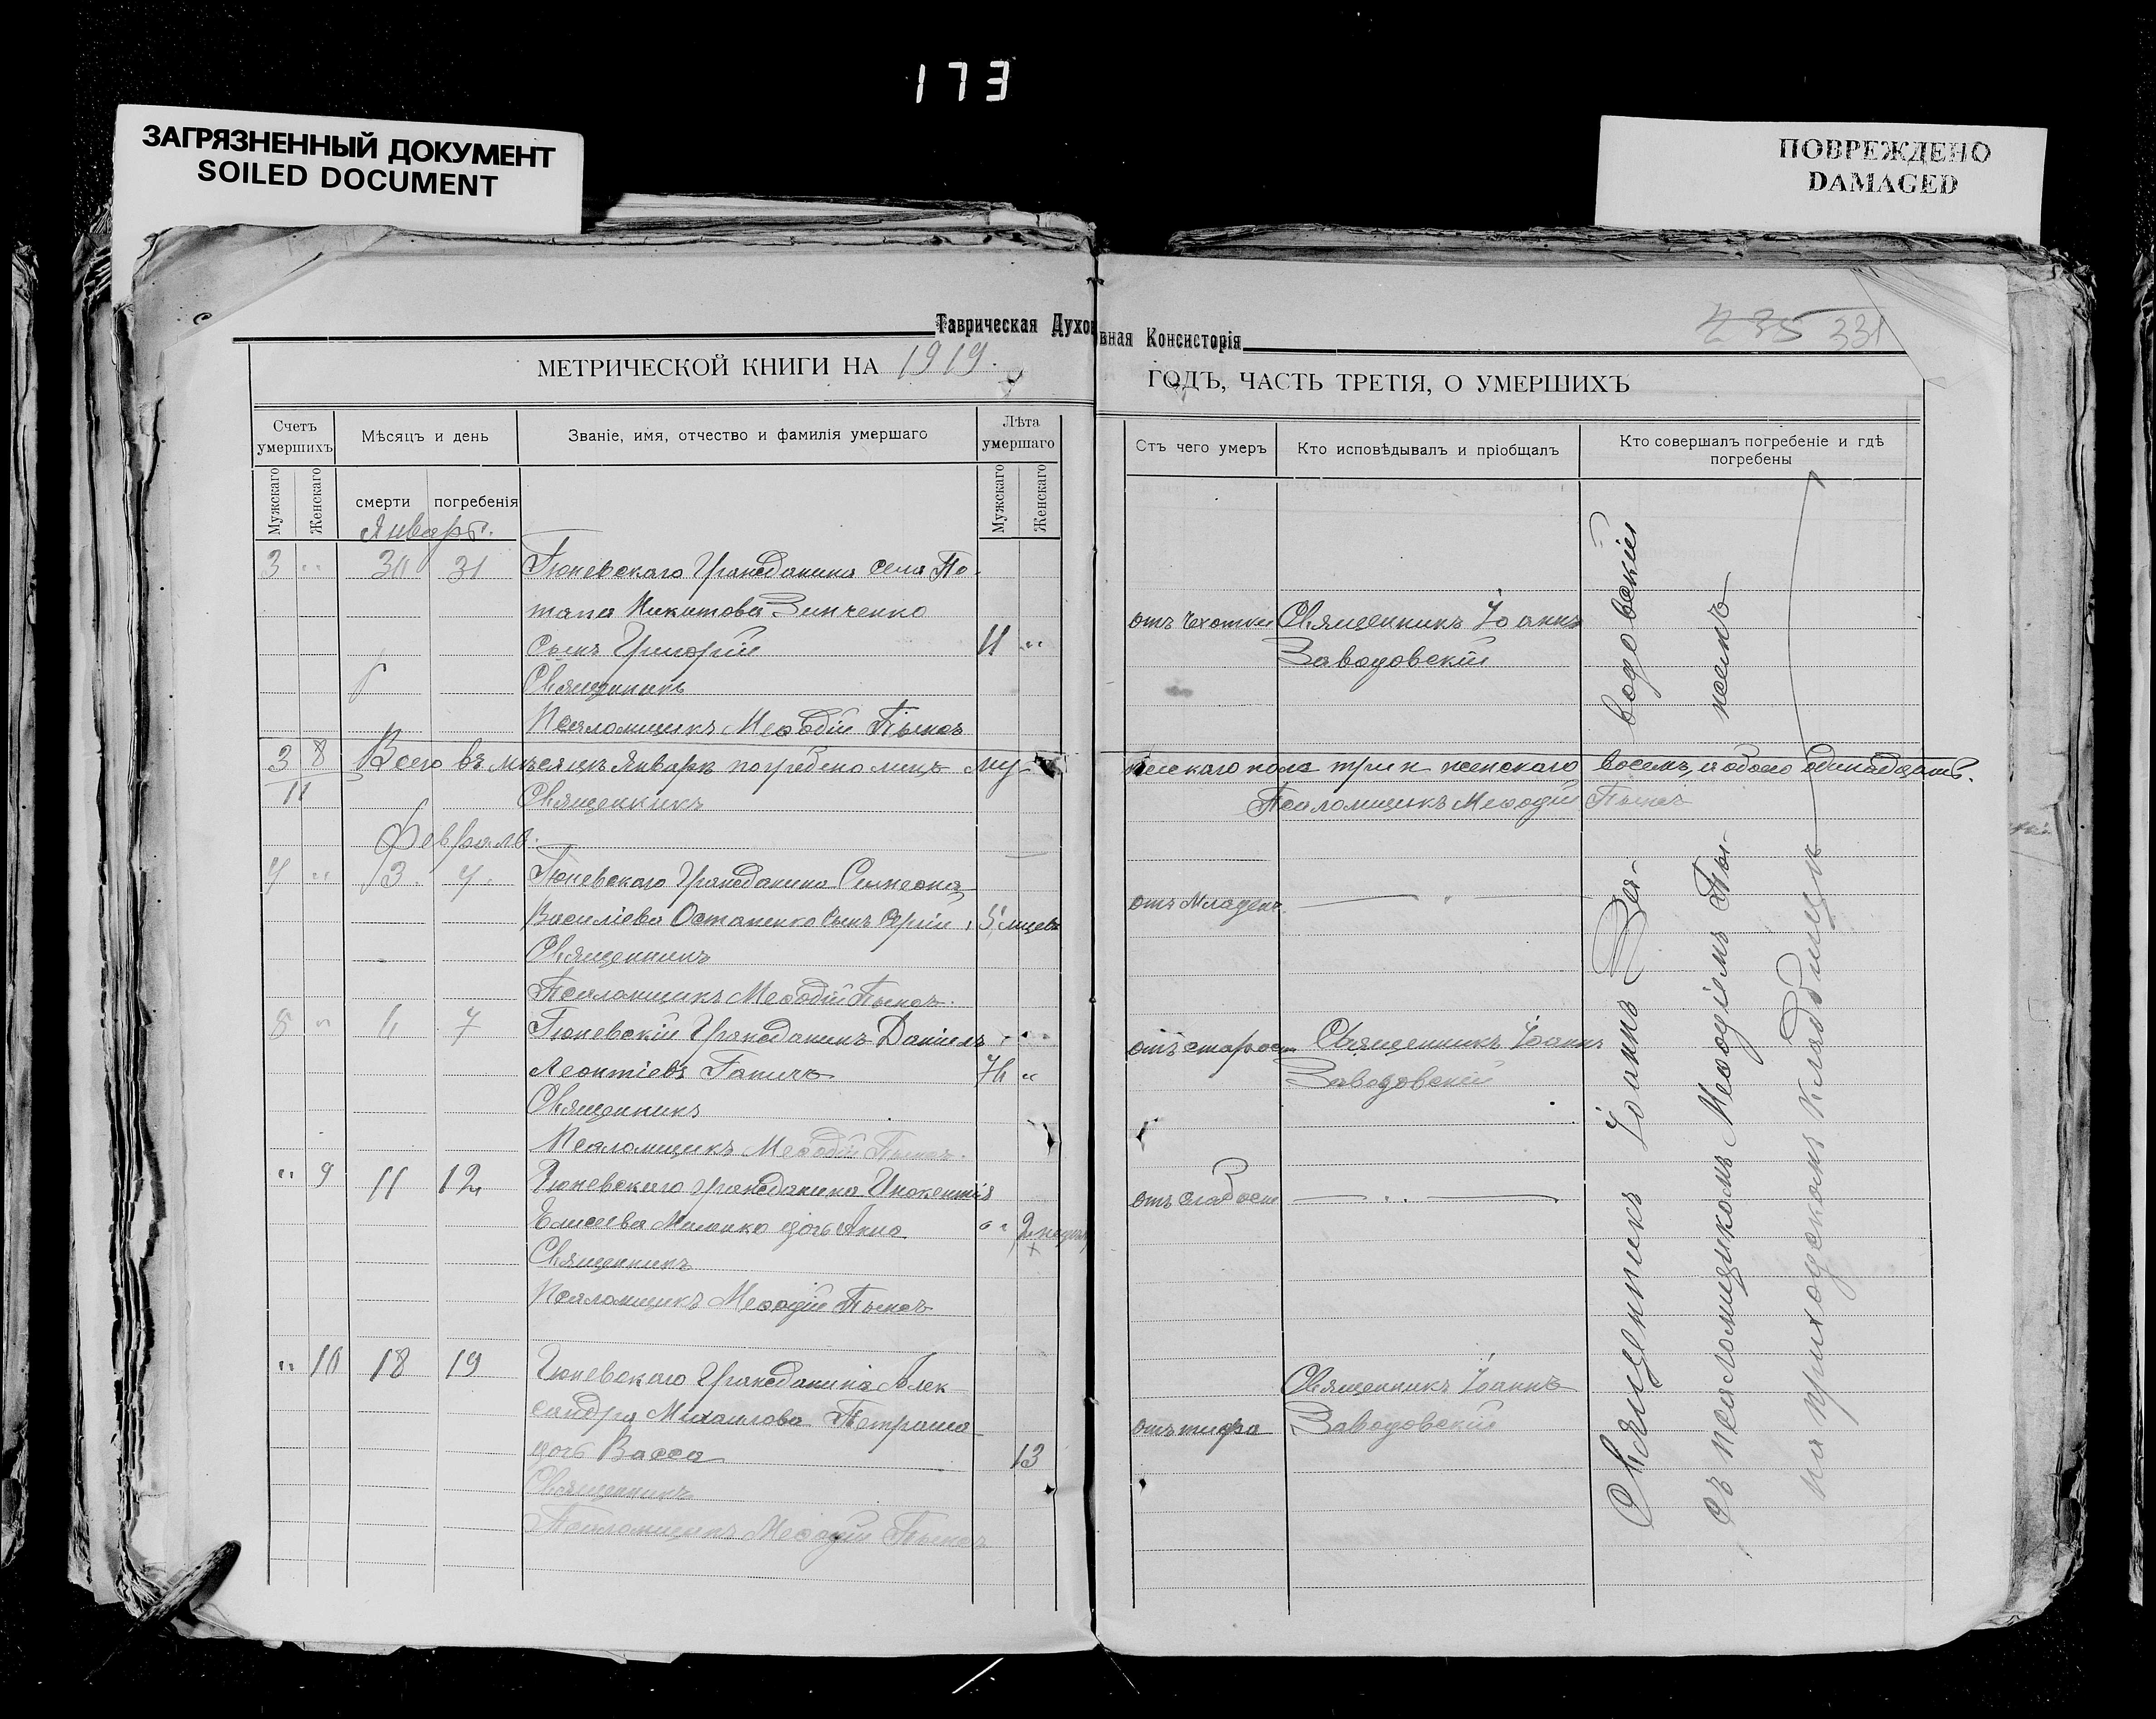 173
ЗАГРЯЗНЕННЫЙ ДОКУМЕНТ
SOILED DOCUMENT
ПОВРЕЖДЕНО
DAMAGED
Таврическая Духовная Консисторія
235 331
МЕТРИЧЕСКОЙ КНИГИ НА 1919.
ГОДЪ, ЧАСТЬ ТРЕТІЯ, О УМЕРШИХЪ
Счетъ умершихъ
Мѣсяцъ и день
Званіе, имя, отчество и фамилія умершаго
Лѣта умершаго
Мужскаго
Женскаго
смерти
погребенія
Мужскаго
Женскаго
Отъ чего умеръ
Кто исповѣдывалъ и пріобщалъ
Кто совершалъ погребеніе и гдѣ погребены
Январь.
3 " 30 31 Тюневскаго Гражданина села По-
тапа Никитова Зинченко
отъ чахотки Священникъ Іоаннъ
сынъ Григорій 11 "
Заводовскій
Священникъ
Псаломщикъ Меѳодій
3 8 Всего въ мѣсяцѣ Январѣ погребено лицъ мужескаго пола три и женскаго восемь, и обоего одинадцать.
11 Священникъ Псаломщикъ Меѳодій
Февраль.
4 " 3 4 Тюневскаго Гражданина Симеона
Василіева Остапенко сынъ 5 мцевъ
отъ младен.
Священникъ
Псаломщикъ Меѳодій
5 " 6 7 Тюневскій Гражданинъ Даніилъ
отъ старости Священникъ Іоаннъ
Леонтіевъ "
Заводовскій
Священникъ
Псаломщикъ Меѳодій
" 9 11 12 Тюневскаго Гражданина Инокентія
отъ слабости
Елисеева дочь Анна " 2 недѣль
Священникъ
Псаломщикъ Меѳодій
" 10 18 19 Тюневскаго Гражданина Алек-
Священникъ Іоаннъ
сандра Михаилова Петраша
отъ тифа Заводовскій
дочь Васса 13
Священникъ
Псаломщикъ Меѳодій
Священникъ Іоаннъ Заводовскій
съ псаломщикомъ Меѳодіемъ
на приходскомъ кладбищѣ